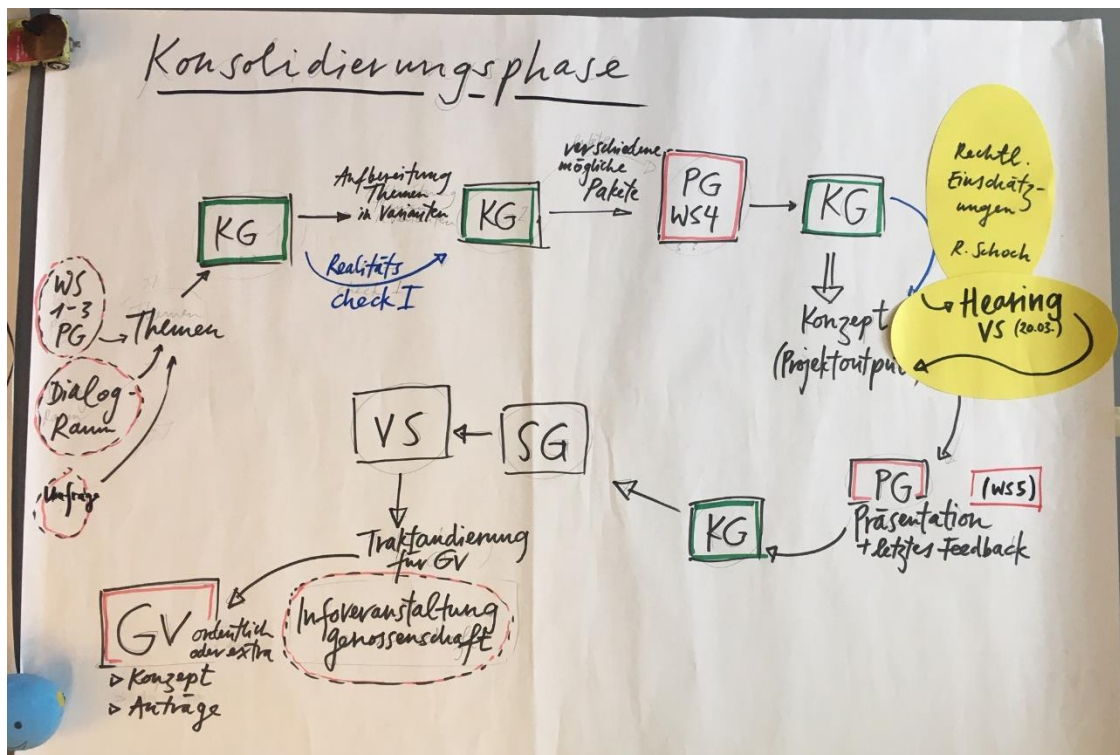 Konsolidierungsphase
WS
1-3
PG
Dialog-
Raum
Umfrage
Themen
KG
Aufbereitung
Themen
in Varianten
Realitäts
check I
KG
verschiedene
mögliche
Pakete
PG
WS4
KG
Konzept
(Projektoutput
Rechtl.
Einschätz-
ungen
R. Schoch
Hearing
VS (20.03.)
PG
(WS5)
Präsentation
+ letztes Feedback
KG
SG
VS
Traktandierung
für GV
Infoveranstaltung
genossenschaft
GV
ordentlich
oder extra
▷ Konzept
▷ Anträge